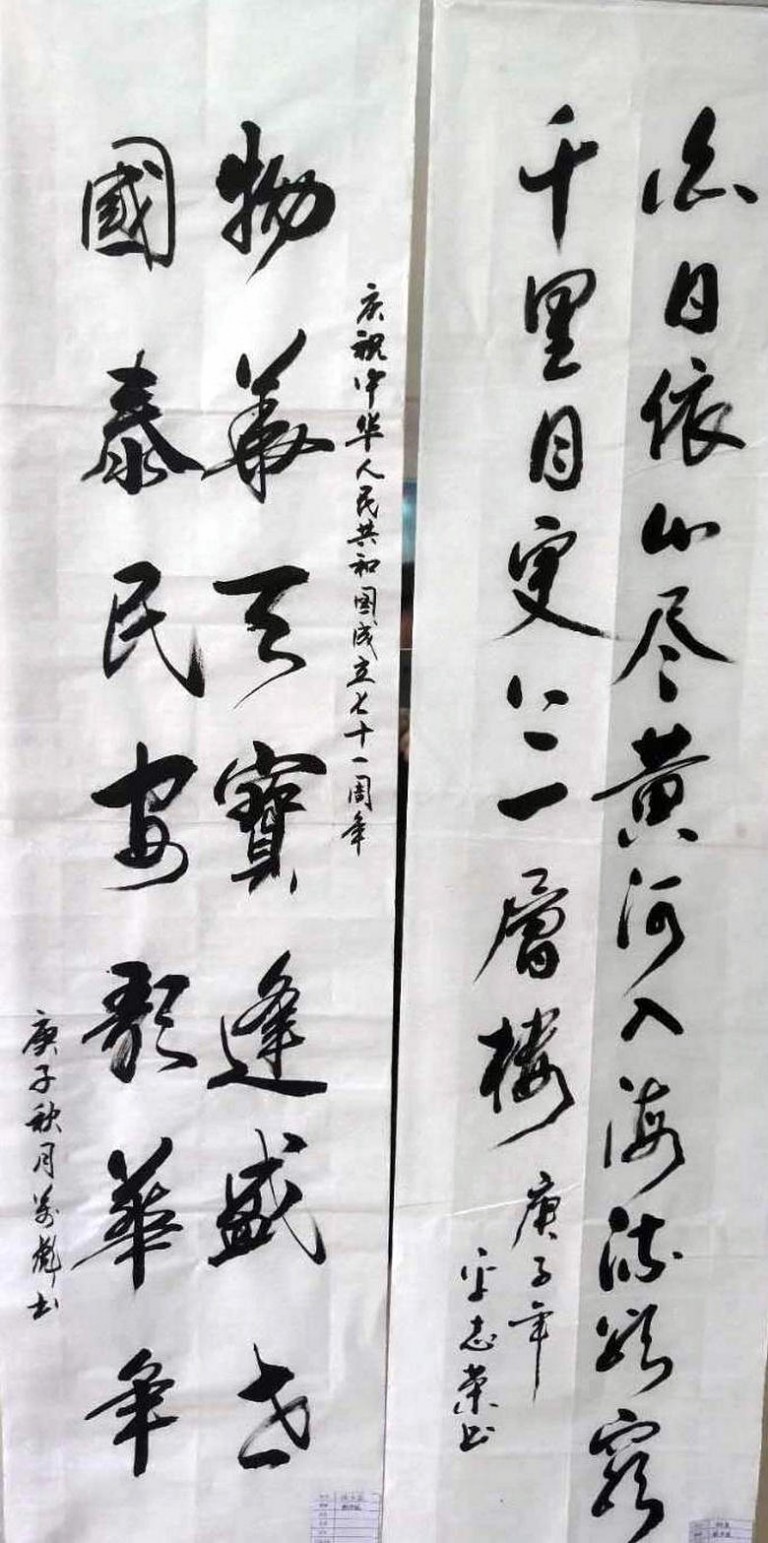 白日依山尽黄河入海流欲穷
千里目更上一層楼
庚子年
志荣书
庆祝中华人民共和国成立七十一周年
物華天寶逢盛世
國泰民安歌華年
庚子秋月书